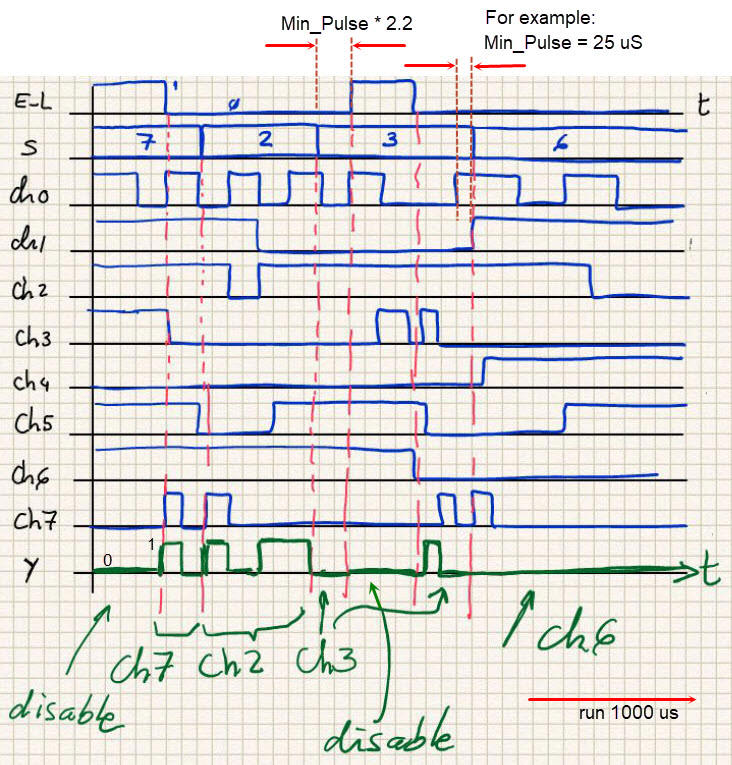 For example:
Min_Pulse * 2.2
Min_Pulse = 25 uS
E_L 1 0 t
S 7 2 3 6
ch0
ch1
ch2
ch3
ch4
ch5
ch6
ch7
Y 0 1 t
ch7 ch2 ch3 ch6
disable disable
run 1000 us